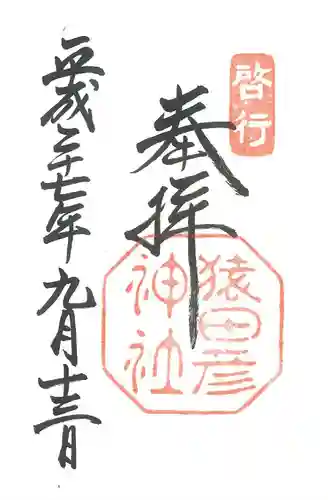 啓行
奉拝
猿田彦
神社
平成二十七年九月十三日